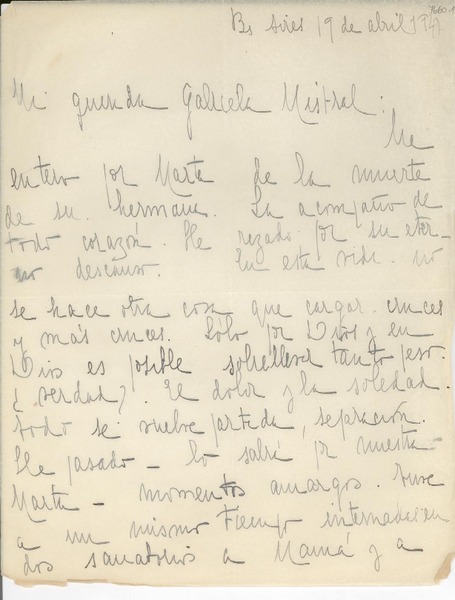 Bs Aires 19 de abril 194
Mi querida Gabriela Mistral:
Me
entero por Marta de la muerte
de su hermana. La acompaño de
todo corazón. He rezado por su eter-
no descanso. En esta vida no
se hace otra cosa que cargar cruces
y más cruces. Sólo por Dios y en
Dios es posible sobrellevar tanto peso.
¿verdad? El dolor y la soledad.
todo se vuelve partida, separación.
He pasado - lo sabrá por nuestra
Marta - momentos amargos. Tuve
a un mismo tiempo internada en
dos sanatorios a Mamá y a